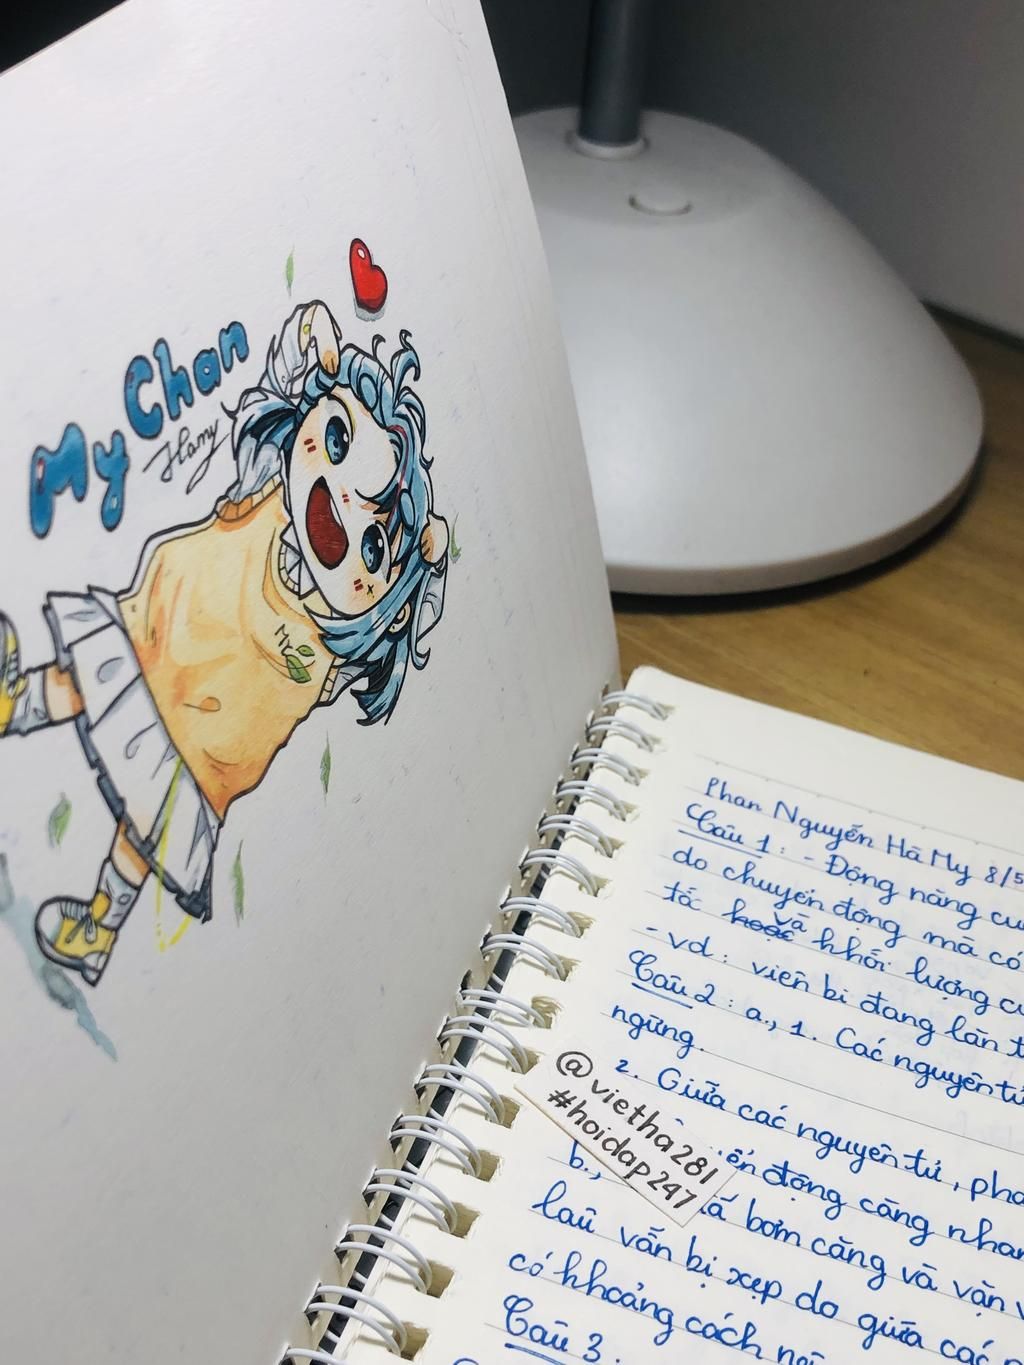 My Chan
Hamy
My
Phan Nguyễn Hà My 8/5
Câu 1: - Động năng cu
do chuyển động mà có
tốc hoặc và khối lượng củ
- vd: viên bi đang lăn t
Câu 2: a., 1. Các nguyên tử
ngừng.
2. Giữa các nguyên tử, phâ
ển động càng nhan
b., á bơm căng và vặn
lâu vẫn bị xẹp do giữa các
có khoảng cách
Câu 3:
@vietha281
#hoidap247